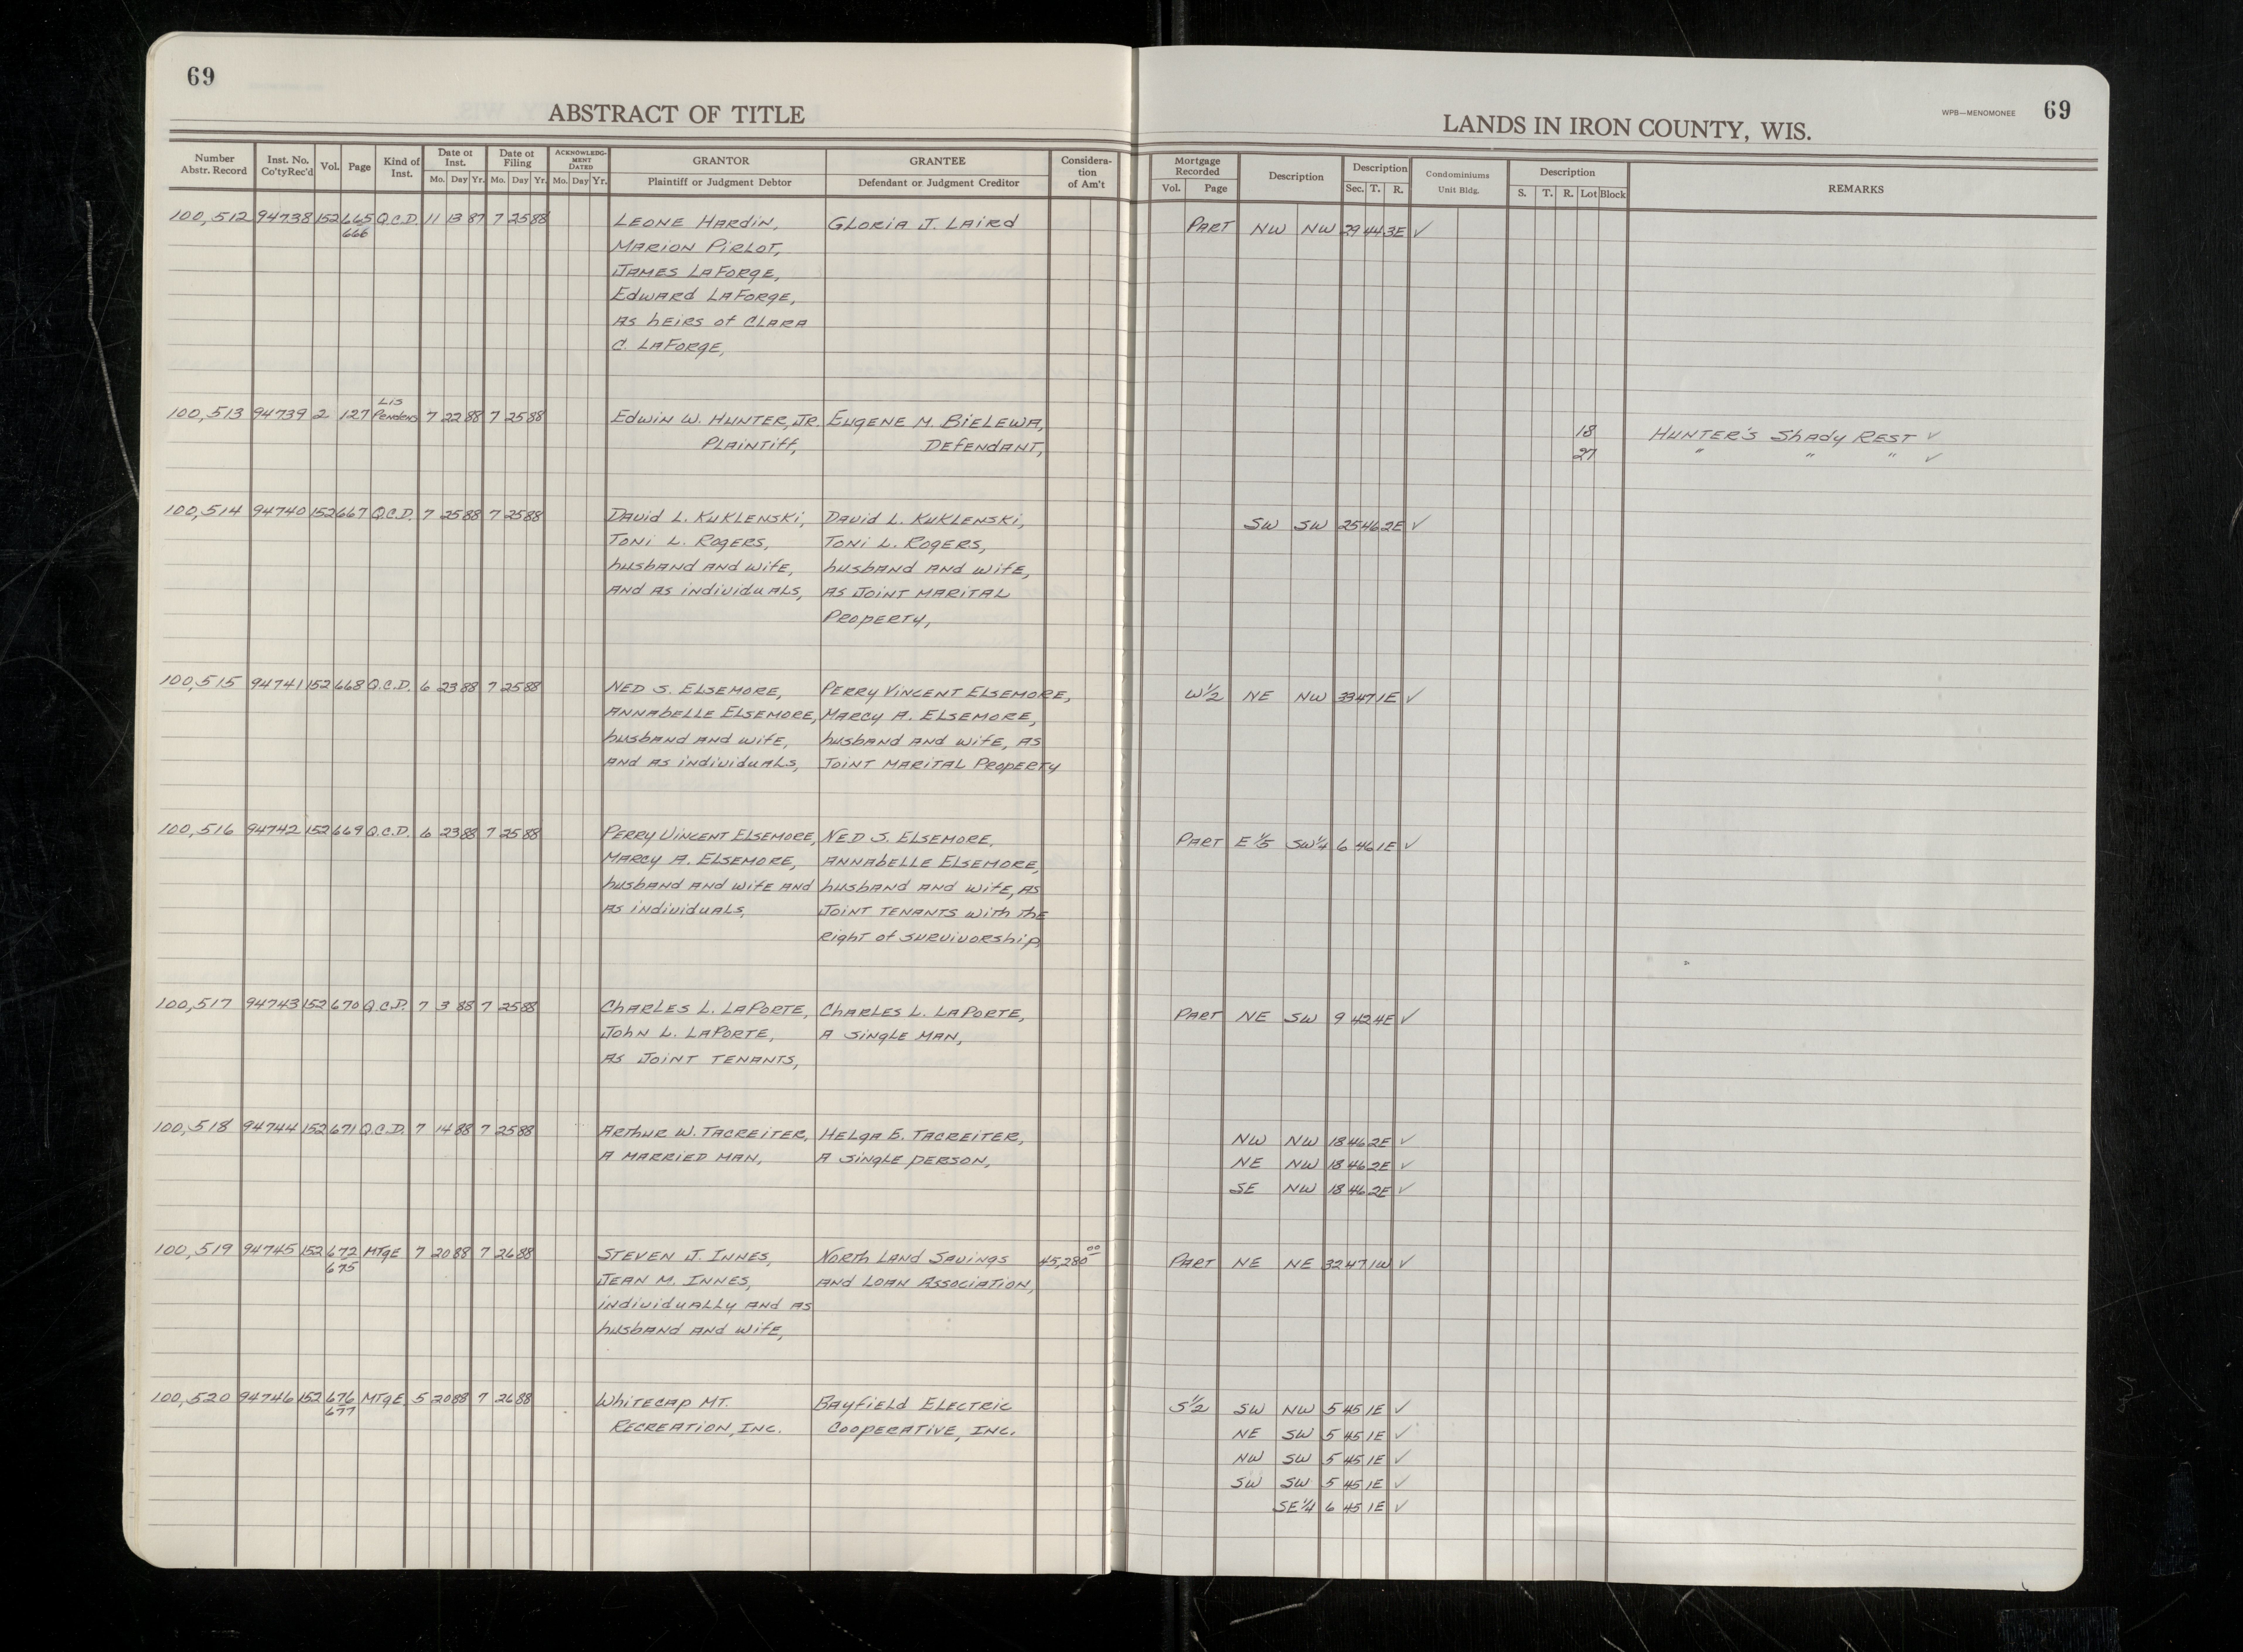 69
ABSTRACT OF TITLE
LANDS IN IRON COUNTY, WIS.
WPB—MENOMONEE 69
Number Abstr. Record | Inst. No. Co'tyRec'd | Vol. | Page | Kind of Inst. | Date of Inst. Mo. Day Yr. | Date of Filing Mo. Day Yr. | ACKNOWLEDGMENT DATED Mo. Day Yr. | GRANTOR Plaintiff or Judgment Debtor | GRANTEE Defendant or Judgment Creditor | Consideration of Am't | Mortgage Recorded Vol. Page | Description | Description Sec. T. R. | Condominiums Unit Bldg. | Description S. T. R. Lot Block | REMARKS
100,512 94738 152 665 Q.C.D. 11 13 87 7 25 88 LEONE HARDIN, GLORIA J. LAIRD PART NW NW 29 44 3E ✓
666 MARION PIRLOT,
JAMES LAFORGE,
EDWARD LAFORGE,
AS HEIRS OF CLARA
C. LAFORGE,
100,513 94739 2 127 Lis Pendens 7 22 88 7 25 88 EDWIN W. HUNTER, JR. EUGENE M. BIELEWA, 18 HUNTER'S SHADY REST ✓
PLAINTIFF, DEFENDANT, 27 " " " ✓
100,514 94740 152 667 Q.C.D. 7 25 88 7 25 88 DAVID L. KUKLENSKI, DAVID L. KUKLENSKI, SW SW 25 46 2E ✓
TONI L. ROGERS, TONI L. ROGERS,
HUSBAND AND WIFE, HUSBAND AND WIFE,
AND AS INDIVIDUALS, AS JOINT MARITAL
PROPERTY,
100,515 94741 152 668 Q.C.D. 6 23 88 7 25 88 NED S. ELSEMORE, PERRY VINCENT ELSEMORE, W 1/2 NE NW 33 47 1E ✓
ANNABELLE ELSEMORE, MARCY A. ELSEMORE,
HUSBAND AND WIFE, HUSBAND AND WIFE, AS
AND AS INDIVIDUALS, JOINT MARITAL PROPERTY
100,516 94742 152 669 Q.C.D. 6 23 88 7 25 88 PERRY VINCENT ELSEMORE, NED S. ELSEMORE, PART E 1/5 SW 1/4 6 46 1E ✓
MARCY A. ELSEMORE, ANNABELLE ELSEMORE,
HUSBAND AND WIFE AND HUSBAND AND WIFE, AS
AS INDIVIDUALS, JOINT TENANTS WITH THE
RIGHT OF SURVIVORSHIP,
100,517 94743 152 670 Q.C.D. 7 3 88 7 25 88 CHARLES L. LAPORTE, CHARLES L. LAPORTE, PART NE SW 9 42 4E ✓
JOHN L. LAPORTE, A SINGLE MAN,
AS JOINT TENANTS,
100,518 94744 152 671 Q.C.D. 7 14 88 7 25 88 ARTHUR W. TACREITER, HELGA E. TACREITER, NW NW 18 46 2E ✓
A MARRIED MAN, A SINGLE PERSON, NE NW 18 46 2E ✓
SE NW 18 46 2E ✓
100,519 94745 152 672 MTGE 7 20 88 7 26 88 STEVEN J. INNES, NORTH LAND SAVINGS 45,280 00 PART NE NE 32 47 1W ✓
675 JEAN M. INNES, AND LOAN ASSOCIATION,
INDIVIDUALLY AND AS
HUSBAND AND WIFE,
100,520 94746 152 676 MTGE 5 20 88 7 26 88 WHITECAP MT. BAYFIELD ELECTRIC S 1/2 SW NW 5 45 1E ✓
677 RECREATION, INC. COOPERATIVE, INC. NE SW 5 45 1E ✓
NW SW 5 45 1E ✓
SW SW 5 45 1E ✓
SE 1/4 6 45 1E ✓